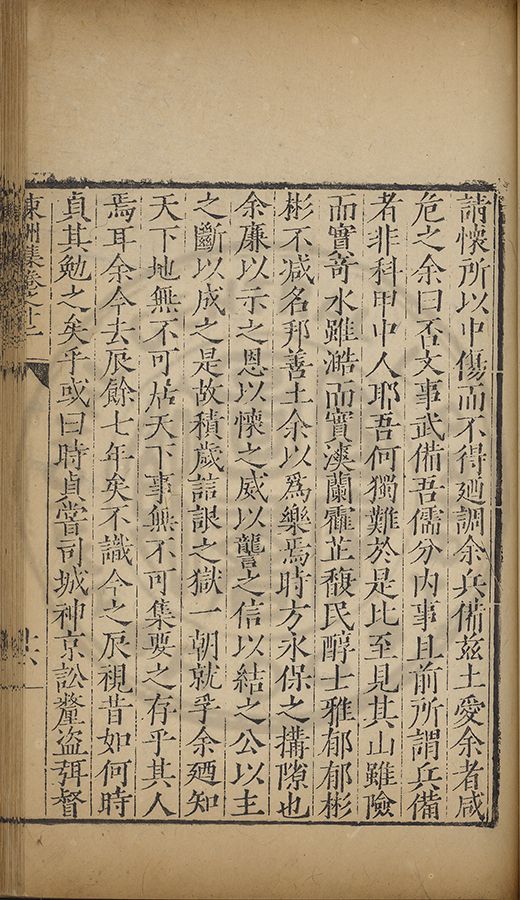 請懷所以中傷而不得廼調余兵備茲土愛余者咸
危之余曰否文事武備吾儒分內事且前所謂兵備
者非科甲中人耶吾何獨難於是比至見其山雖險
而實竒水雖澔而實漪蘭霍芷馥民醇士雅郁郁彬
彬不减名邦善土余以爲樂焉時方永保之搆隙也
余廉以示之恩以懷之威以讋之信以結之公以主
之斷以成之是故積歲詰詪之獄一朝就孚余廼知
天下地無不可居天下事無不可集要之存乎其人
焉耳余今去辰餘七年矣不識今之辰視昔如何時
貞其勉之矣乎或曰時貞嘗司城神京訟釐盜弭督
東洲集卷之十二